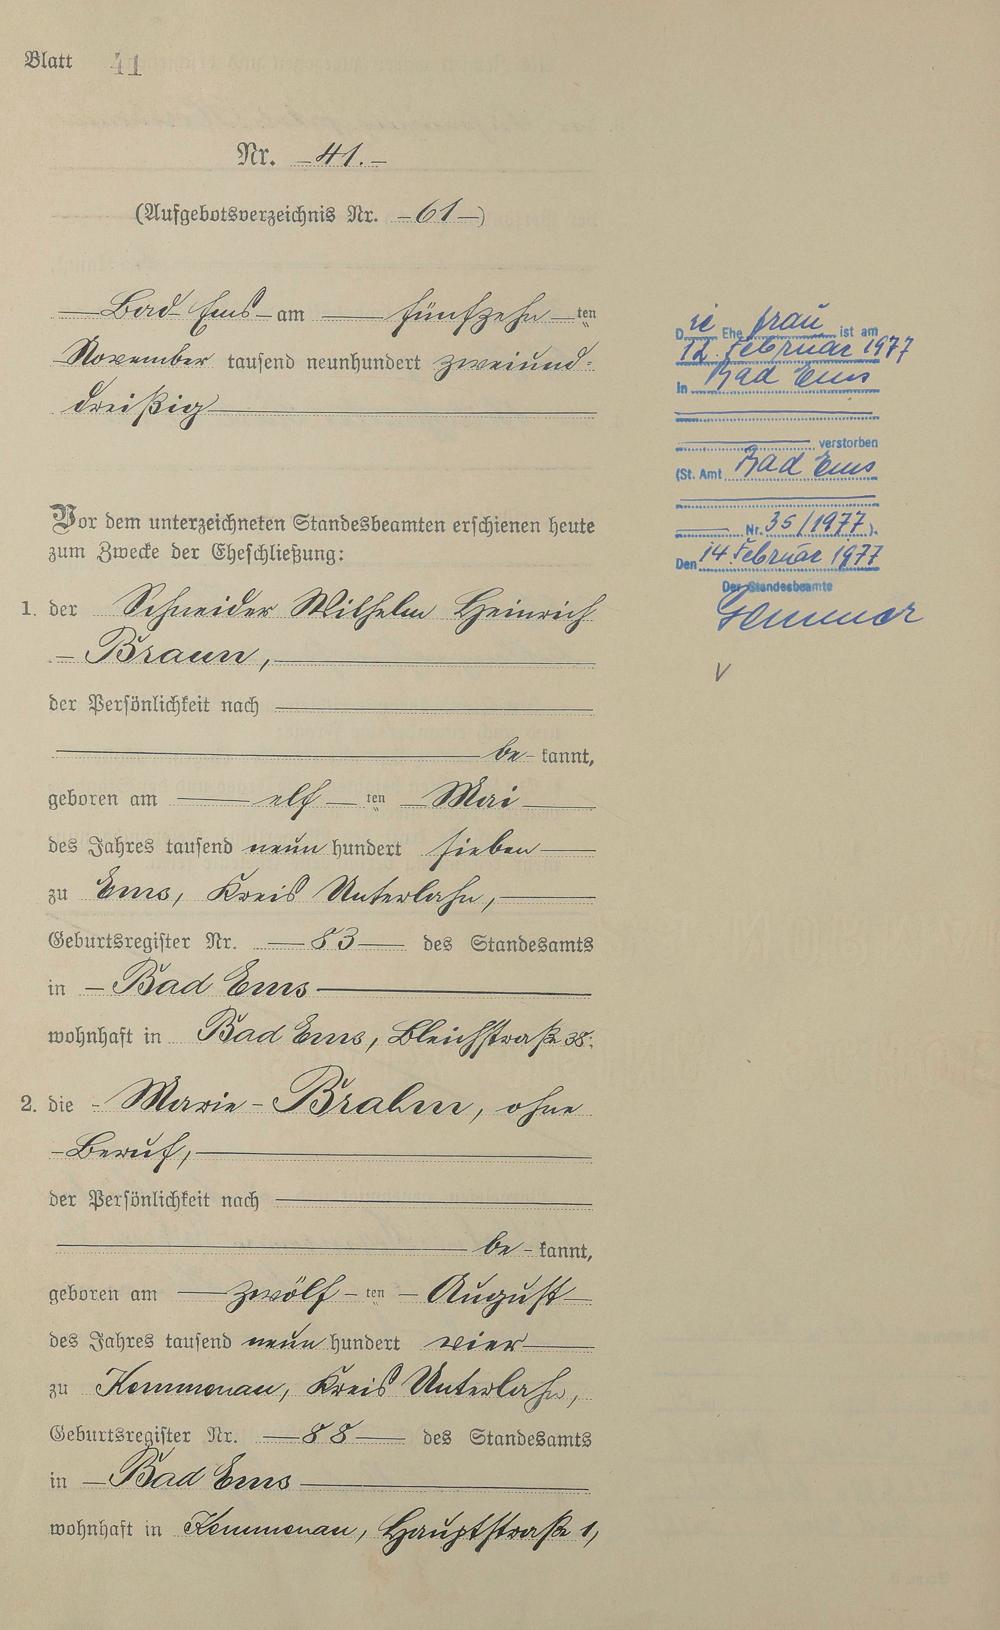 Blatt 41
Nr. 41.
(Aufgebotsverzeichnis Nr. 61)
Bad Ems am fünfzehn ten
November tausend neunhundert zweiund-
dreißig
Vor dem unterzeichneten Standesbeamten erschienen heute
zum Zwecke der Eheschließung:
1. der Schneider Wilhelm Heinrich
Braun,
der Persönlichkeit nach
be kannt,
geboren am elf ten Mai
des Jahres tausend neun hundert sieben
zu Ems, Kreis Unterlahn,
Geburtsregister Nr. 83 des Standesamts
in Bad Ems
wohnhaft in Bad Ems, Bleichstraße 38.
2. die Marie Brahm, ohne
Beruf,
der Persönlichkeit nach
be kannt,
geboren am zwölf ten August
des Jahres tausend neun hundert vier
zu Kemmenau, Kreis Unterlahn,
Geburtsregister Nr. 88 des Standesamts
in Bad Ems
wohnhaft in Kemmenau, Hauptstraße 1,
Die Ehe frau ist am
12. Februar 1977
in Bad Ems
verstorben
(St. Amt Bad Ems
Nr. 35/1977).
Den 14 Februar 1977
Der Standesbeamte